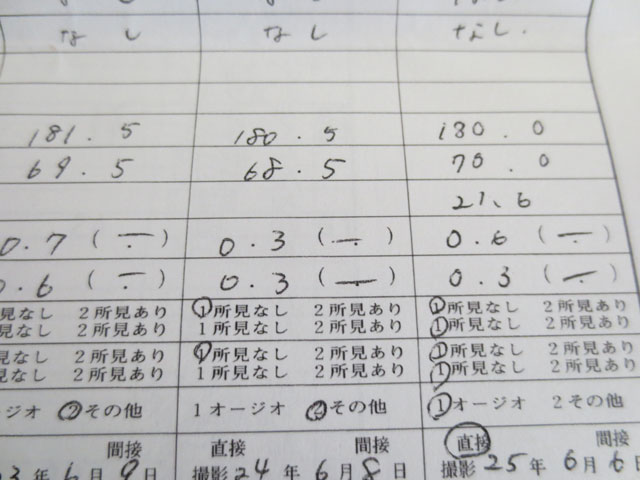 なし なし なし.
181.5 180.5 180.0
69.5 68.5 70.0
21.6
0.7 ( ) 0.3 ( ) 0.6 ( )
0.6 ( ) 0.3 ( ) 0.3 ( )
見なし 2所見あり 1所見なし 2所見あり 1所見なし 2所見あり
見なし 2所見あり 1所見なし 2所見あり 1所見なし 2所見あり
見なし 2所見あり 1所見なし 2所見あり 1所見なし 2所見あり
見なし 2所見あり 1所見なし 2所見あり 1所見なし 2所見あり
ージオ 2その他 1オージオ 2その他 1オージオ 2その他
間接 直接 間接 直接 間接
3年6月9日 撮影24年6月8日 撮影25年6月6日